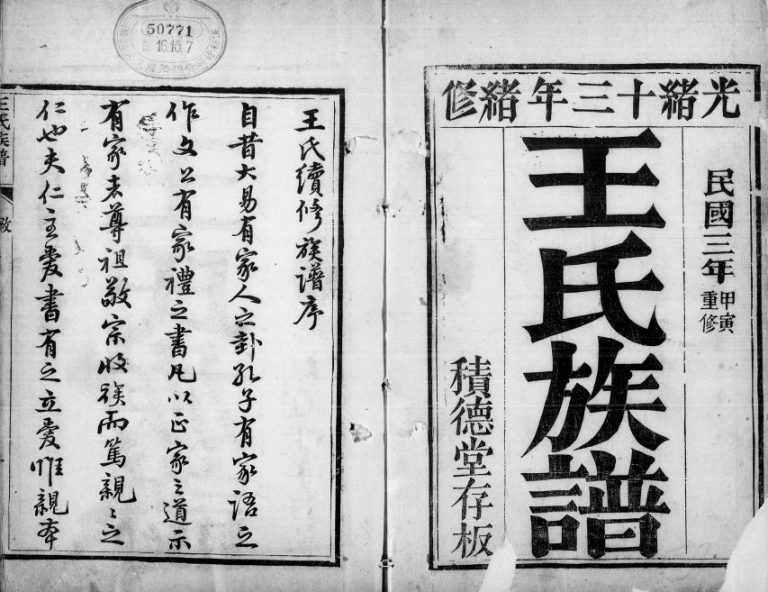 光緒十三年緒修
民國三年甲寅重修
王氏族譜
積德堂存板
50771
16.10.7
王氏續修族譜序
自昔大易有家人之卦孔子有家語之
作文公有家禮之書凡以正家之道示
有家者尊祖敬宗收族而篤親〻之
仁也夫仁主愛書有之立愛惟親本
王氏族譜